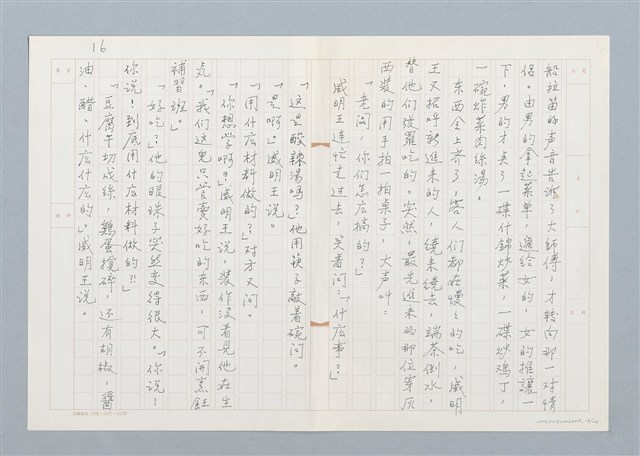 16
船拉笛的声音告诉了大師傅，才转向那一对情
侣。由男的拿起菜单，遞给女的，女的推讓一
下，男的才点了一碟什錦炒菜，一碟炒鸡丁，
一碗炸菜肉絲湯。
东西全上齐了，客人们都在慢々的吃，威明
王又招呼新進来的人，繞来繞去，端茶倒水，
替他们張罗吃的。突然，最先進来的那位穿灰
西裝的用手拍一拍桌子，大声叫：
「老闆，你们怎広搞的？」
威明王連忙走过去，笑着问：「什広事？」
「这是酸辣湯吗？」他用筷子敲着碗问。
「是啊。」威明王说。
「用什広材料做的？」对方又问。
「你想学啊？」威明王说，装作没看见他在生
气。「我们这兒只管賣好吃的东西，可不開烹飪
補習班。」
「好吃？」他的眼珠子突然变得很大。「你说！
你说！到底用什広材料做的？！」
「豆腐干切成絲，鷄蛋攪碎，还有胡椒，醬
油、醋、什広什広的。」威明王说。